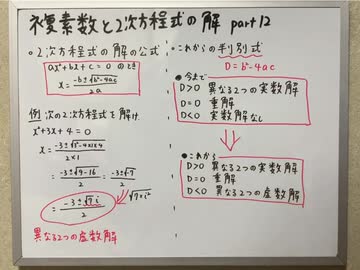 複素数と2次方程式の解 part12
・2次方程式の解の公式
ax²+bx+c=0 のとき
x = (-b±√(b²-4ac))/2a
例 次の2次方程式を解け。
x²+3x+4=0
x = (-3±√(3²-4×1×4))/(2×1)
= (-3±√(9-16))/2 = (-3±√-7)/2
= (-3±√7i)/2
異なる2つの虚数解
・これからの判別式
D=b²-4ac
●今まで
D>0 異なる2つの実数解
D=0 重解
D<0 実数解なし
●これから
D>0 異なる2つの実数解
D=0 重解
D<0 異なる2つの虚数解